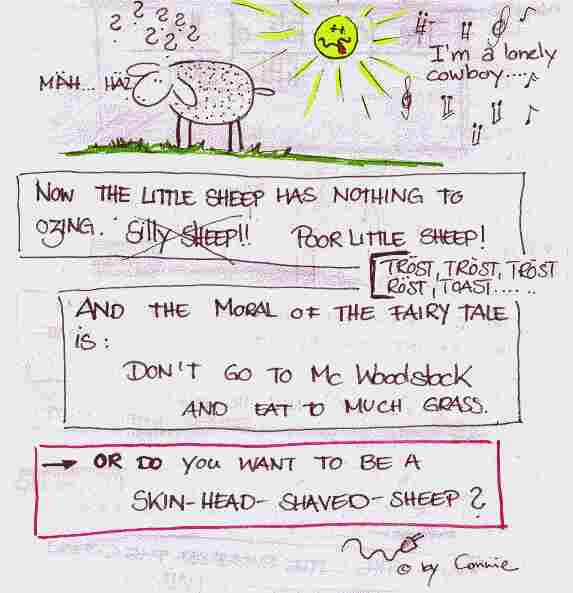 I'm a lonely
cowboy....
MÄH... HÄ?
NOW THE LITTLE SHEEP HAS NOTHING TO
OZING. Silly SHEEP!! POOR LITTLE SHEEP!
TRÖST, TRÖST, TRÖST
RÖST, TOAST......
AND THE MORAL OF THE FAIRY TALE
is:
DON'T GO TO Mc Woodstock
AND EAT TO MUCH GRASS.
→ OR DO YOU WANT TO BE A
SKIN-HEAD-SHAVED-SHEEP?
© by Connie